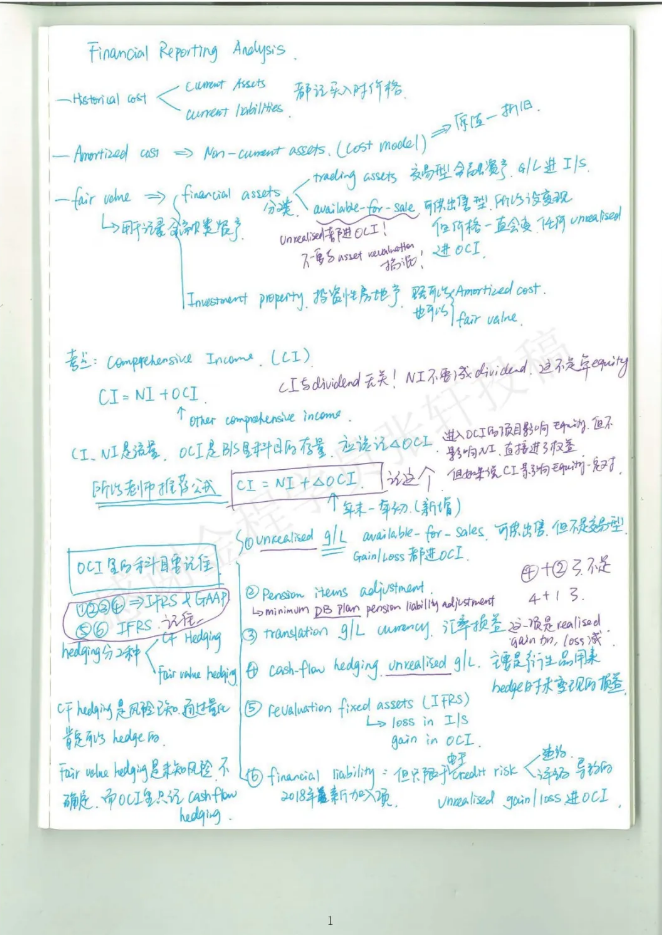 Financial Reporting Analysis.
—Historical cost
current Assets
current liabilities.
都记买入时价格.
—Amortized cost ⇒ Non-current assets. (cost model) ⇒ 原值一折旧
—fair value ⇒ financial assets
分类
trading assets 交易型金融资产. G/L 进 I/S.
available-for-sale 可供出售型, 所以没变现
但价格一直会变 任何 unrealised
进 OCI.
用于记录金融类资产
unrealised 都进 OCI!
不要与 asset revaluation
搞混!
Investment property. 投资性房地产 既可以 Amortized cost.
也可以 fair value.
考点: Comprehensive Income. (CI)
CI = NI + OCI
↑ other comprehensive income.
CI与dividend无关! NI不要减 dividend. 这不是算equity
CI、NI是流量. OCI是B/S里科目的存量, 应该记△OCI.
进入OCI的项目影响 equity. 但不
影响NI. 直接进了权益
但如果说 CI影响 equity 一定对.
所以老师推荐公式 CI = NI + △OCI. 记这个
↑年末一年初.(新增)
OCI里的科目要记住
①②③④ ⇒ IFRS & GAAP
⑤⑥ IFRS. 记住
hedging分2种
CF Hedging
Fair value hedging
CF hedging是风险已知,
hedge
Fair value hedging是未知风险, 不
确定. 而OCI里只记 cash flow
hedging.
① unrealised g/L available-for-sales. 可供出售. 但不是交易型
Gain/Loss 都进OCI.
② Pension items adjustment.
↳ minimum DB plan pension liability adjustment
③ translation g/L currency. 汇率损益
④+②3,不是
4+13.
这一项是realised
gain加, loss减
④ cash-flow hedging unrealised g/L. 主要是衍生品用来
hedge时未变现的损益.
⑤ revaluation fixed assets (IFRS)
↳ loss in I/S
gain in OCI.
⑥ financial liability: 但只限于由于credit risk
违约
导致的
2018年最新加入项.
unrealised gain/loss 进OCI.
感谢金程学员张轩投稿
1